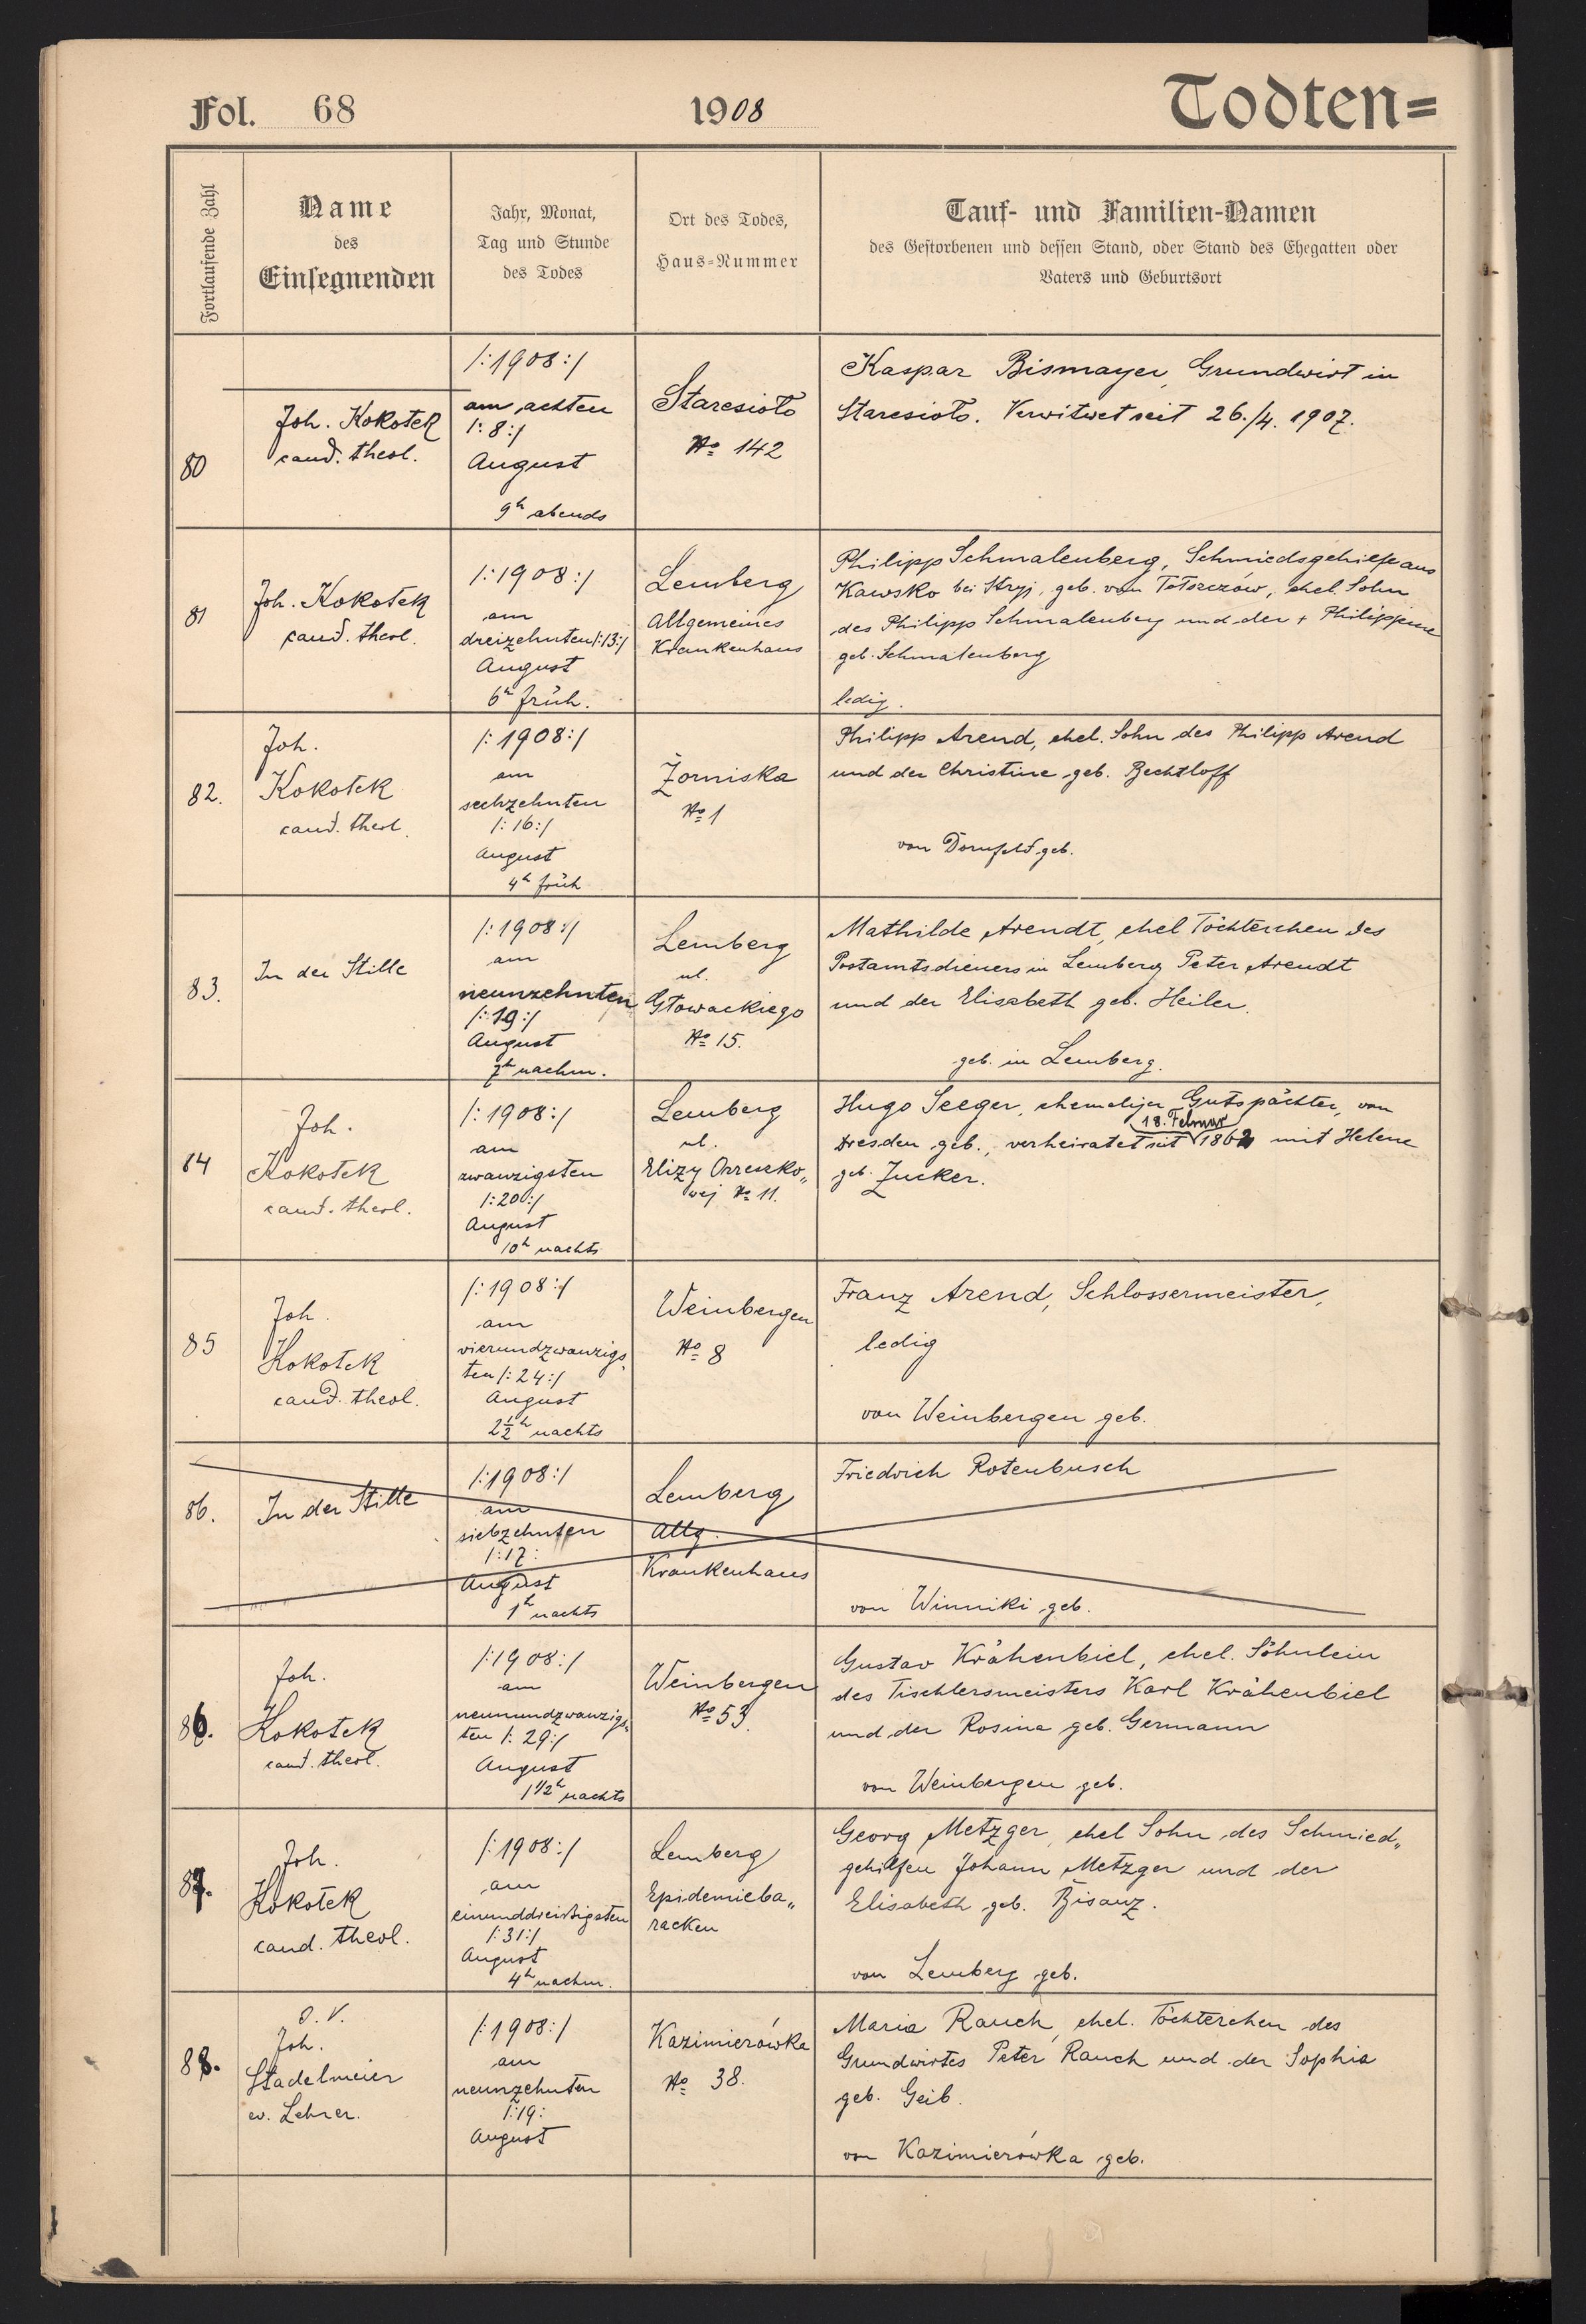 Fol. 68
1908
Todten=
Fortlaufende Zahl
Name
des
Einsegnenden
Jahr, Monat,
Tag und Stunde
des Todes
Ort des Todes,
Haus-Nummer
Tauf- und Familien-Namen
des Gestorbenen und dessen Stand, oder Stand des Ehegatten oder
Vaters und Geburtsort
80
Joh. Kokotek
cand. theol.
/:1908:/
am achten
/:8:/
August
9h abends
Staresioło
No 142
Kaspar Bismayer, Grundwirt in
Staresioło. Verwitwet seit 26./4. 1907.
81
Joh. Kokotek
cand. theol.
/:1908:/
am
dreizehnten /:13:/
August
6h früh.
Lemberg
Allgemeines
Krankenhaus
Philipp Schmalenberg, Schmiedsgehilfe aus
Kawsko bei Stryj, geb. von, ehel. Sohn
des Philipp Schmalenberg und der + Philippine
geb. Schmalenberg
ledig.
82.
Joh.
Kokotek
cand. theol.
/:1908:/
am
sechzehnten
/:16:/
August
4h früh
Żorniska
No 1
Philipp Arend, ehel. Sohn des Philipp Arend
und der Christine geb. Bechtloff
von Dornfeld geb.
83.
In der Stille
/:1908:/
am
neunzehnten
/:19:/
August
7h nachm.
Lemberg
ul.
Głowackiego
No 15.
Mathilde Arendt, ehel Töchterchen des
Postamtsdieners in Lemberg Peter Arendt
und der Elisabeth geb. Heiler.
geb. in Lemberg.
84
Joh.
Kokotek
cand. theol.
/:1908:/
am
zwanzigsten
/:20:/
August
10h nachts
Lemberg
ul.
Elizy Orzeszko„
wej No 11.
Hugo Seeger, ehemaliger Gutspächter, von
18. Februar
Dresden geb., verheiratet seit 1862 mit Helene
geb. Zucker.
85
Joh.
Kokotek
cand. theol.
/:1908:/
am
vierundzwanzigs
ten /:24:/
August
2½h nachts
Weinbergen
No 8
Franz Arend, Schlossermeister,
ledig
von Weinbergen geb.
86.
In der Stille
/:1908:/
am
siebzehnten
/:17:
August
1h nachts
Lemberg
Allg.
Krankenhaus
Friedrich Rotenbusch
von Winniki geb.
86.
Joh.
Kokotek
cand. theol.
/:1908:/
am
neunundzwanzigs
ten /: 29:/
August
1 1/2h nachts
Weinbergen
No 53.
Gustav Krähenbiel, ehel. Söhnlein
des Tischlersmeisters Karl Krähenbiel
und der Rosina geb. Germann
von Weinbergen geb.
87.
Joh.
Kokotek
cand. theol.
/:1908:/
am
einunddreissigsten
/:31:/
August
4h nachm.
Lemberg
Epidemieba„
racken
Georg Metzger, ehel Sohn des Schmied„
gehilfen Johann Metzger und der
Elisabeth geb. Bisanz.
von Lemberg geb.
88.
O. V.
Joh.
Stadelmeier
ev. Lehrer.
/:1908:/
am
neunzehnten
/:19:
August
Kazimierówka
No 38.
Maria Rauch, ehel. Töchterchen des
Grundwirtes Peter Rauch und der Sophia
geb. Geib.
von Kazimierówka geb.